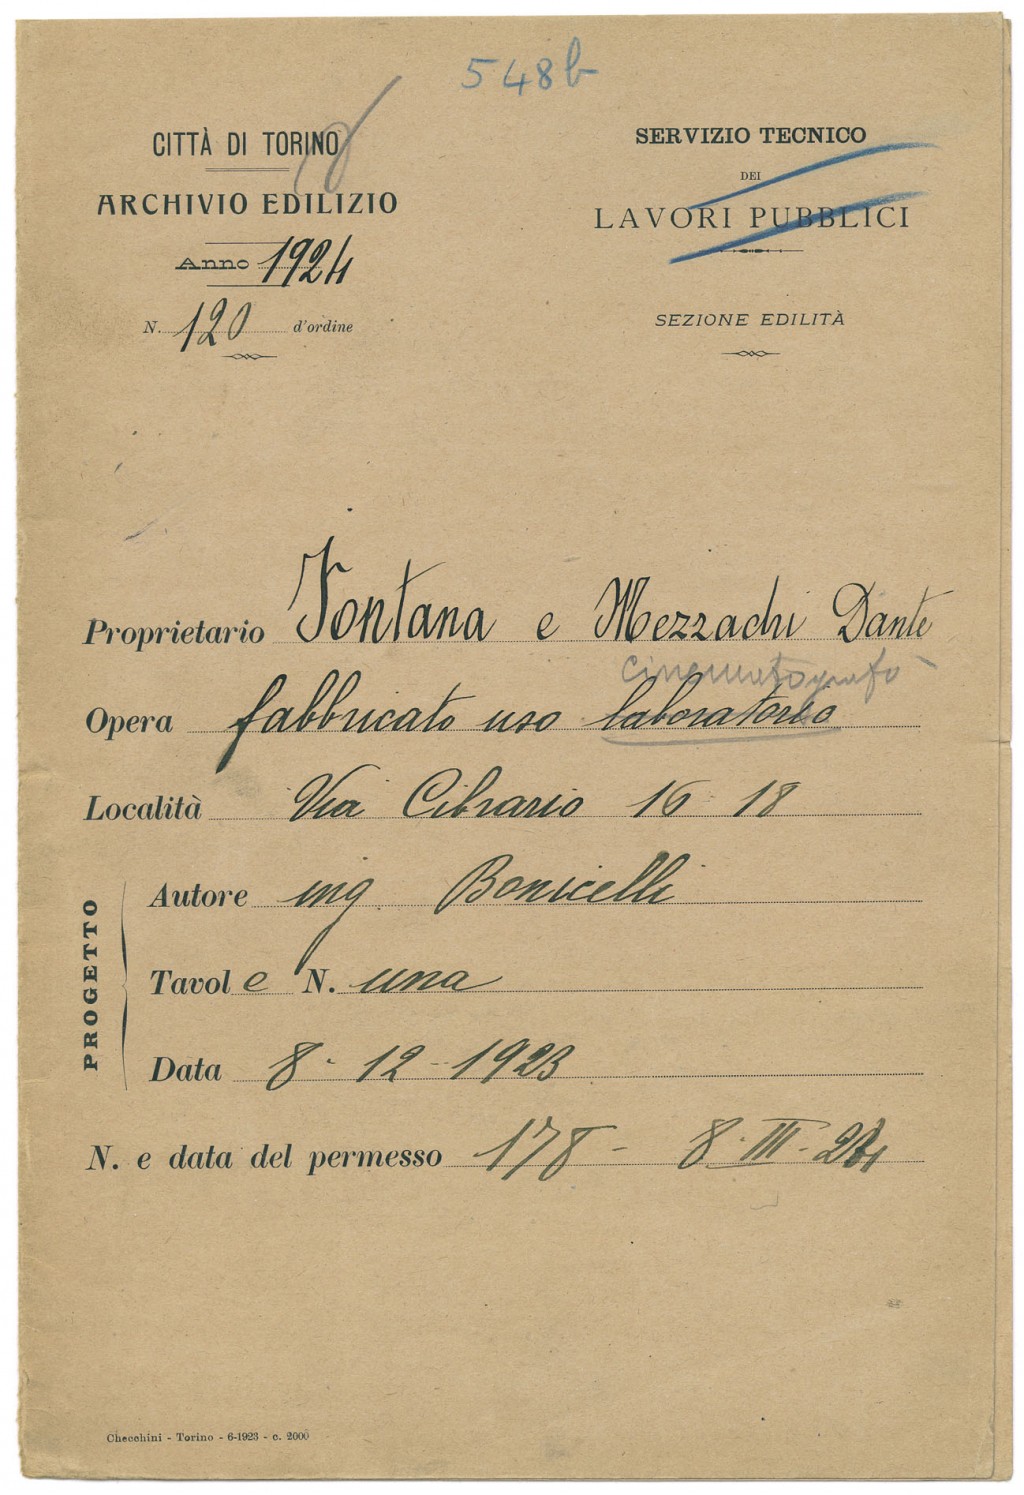 548b
CITTÀ DI TORINO
ARCHIVIO EDILIZIO
Anno 1924
N. 120 d'ordine
SERVIZIO TECNICO
DEI
LAVORI PUBBLICI
SEZIONE EDILITÀ
Proprietario Fontana e Mezzachi Dante
cinematografo
Opera fabbricato uso laboratorio
Località Via Cibrario 16 18
PROGETTO
Autore ing. Bonicelli
Tavole N. una
Data 8-12-1923
N. e data del permesso 178 - 8. III - 24
Checchini - Torino - 6-1923 - c. 2000